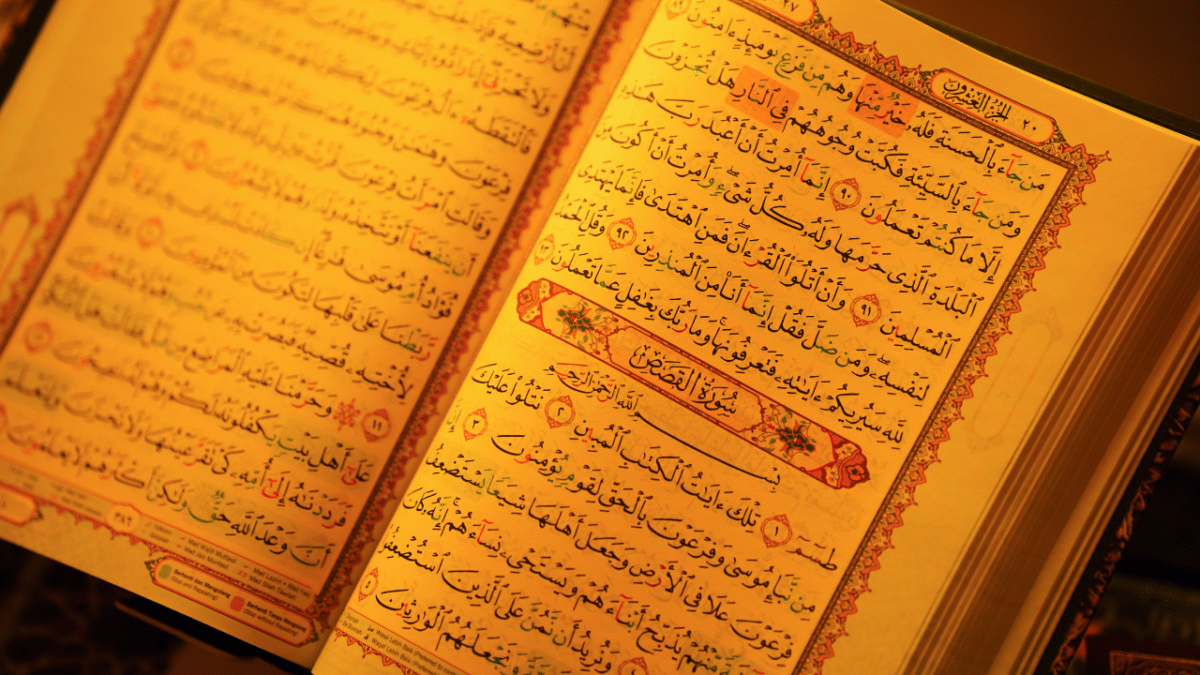 ٢٧
الجزء العشرون ٢٠
مَن جَآءَ بِٱلْحَسَنَةِ فَلَهُۥ خَيْرٌ مِّنْهَا وَهُم مِّن فَزَعٍ يَوْمَئِذٍ ءَامِنُونَ ٨٩
وَمَن جَآءَ بِٱلسَّيِّئَةِ فَكُبَّتْ وُجُوهُهُمْ فِى ٱلنَّارِ هَلْ تُجْزَوْنَ
إِلَّا مَا كُنتُمْ تَعْمَلُونَ ٩٠ إِنَّمَآ أُمِرْتُ أَنْ أَعْبُدَ رَبَّ هَٰذِهِ
ٱلْبَلْدَةِ ٱلَّذِى حَرَّمَهَا وَلَهُۥ كُلُّ شَىْءٍ وَأُمِرْتُ أَنْ أَكُونَ
ٱلْمُسْلِمِينَ ٩١ وَأَنْ أَتْلُوَا۟ ٱلْقُرْءَانَ فَمَنِ ٱهْتَدَىٰ فَإِنَّمَا يَهْتَدِى
لِنَفْسِهِۦ وَمَن ضَلَّ فَقُلْ إِنَّمَآ أَنَا۠ مِنَ ٱلْمُنذِرِينَ ٩٢ وَقُلِ ٱلْحَمْدُ
لِلَّهِ سَيُرِيكُمْ ءَايَٰتِهِۦ فَتَعْرِفُونَهَا وَمَا رَبُّكَ بِغَٰفِلٍ عَمَّا تَعْمَلُونَ ٩٣
سُورَةُ القَصَصِ
بِسْمِ ٱللَّهِ ٱلرَّحْمَٰنِ ٱلرَّحِيمِ
طسٓمٓ ١ تِلْكَ ءَايَٰتُ ٱلْكِتَٰبِ ٱلْمُبِينِ ٢ نَتْلُوا۟ عَلَيْكَ
مِن نَّبَإِ مُوسَىٰ وَفِرْعَوْنَ بِٱلْحَقِّ لِقَوْمٍ يُؤْمِنُونَ ٣ إِنَّ
فِرْعَوْنَ عَلَا فِى ٱلْأَرْضِ وَجَعَلَ أَهْلَهَا شِيَعًا يَسْتَضْعِفُ
مِّنْهُمْ يُذَبِّحُ أَبْنَآءَهُمْ وَيَسْتَحْىِۦ نِسَآءَهُمْ إِنَّهُۥ كَانَ
وَنُرِيدُ أَن نَّمُنَّ عَلَى ٱلَّذِينَ ٱسْتُضْعِفُوا۟
وَنَجْعَلَهُمُ ٱلْوَٰرِثِينَ
مِنْهُم
أَنْ أَرْضِعِيهِ فَإِذَا خِفْتِ
وَلَا تَحْزَنِىٓ إِنَّا رَآدُّوهُ
فَٱلْتَقَطَهُۥٓ ءَالُ فِرْعَوْنَ لِيَكُونَ
فِرْعَوْنَ وَهَٰمَٰنَ وَجُنُودَهُمَا
وَقَالَتِ ٱمْرَأَتُ فِرْعَوْنَ قُرَّتُ عَيْنٍ
أَن يَنفَعَنَآ أَوْ نَتَّخِذَهُۥ وَلَدًا وَهُمْ لَا يَشْعُرُونَ
فُؤَادُ أُمِّ مُوسَىٰ فَٰرِغًا إِن كَادَتْ
رَّبَطْنَا عَلَىٰ قَلْبِهَا لِتَكُونَ مِنَ ٱلْمُؤْمِنِينَ ١٠ وَقَالَتْ
لِأُخْتِهِۦ قُصِّيهِ فَبَصُرَتْ بِهِۦ
١١ وَحَرَّمْنَا عَلَيْهِ ٱلْمَرَاضِعَ مِن قَبْلُ فَقَالَتْ هَلْ
عَلَىٰٓ أَهْلِ بَيْتٍ يَكْفُلُونَهُۥ لَكُمْ وَهُمْ لَهُۥ نَٰصِحُونَ
فَرَدَدْنَٰهُ إِلَىٰٓ أُمِّهِۦ كَىْ تَقَرَّ عَيْنُهَا وَلَا تَحْزَنَ وَلِتَعْلَمَ
أَنَّ وَعْدَ ٱللَّهِ حَقٌّ وَلَٰكِنَّ أَكْثَرَهُمْ لَا يَعْلَمُونَ
٣٨٦
Berhenti dan Mengulang
(Stop and Repeating)
Berhenti Tanpa Mengulang